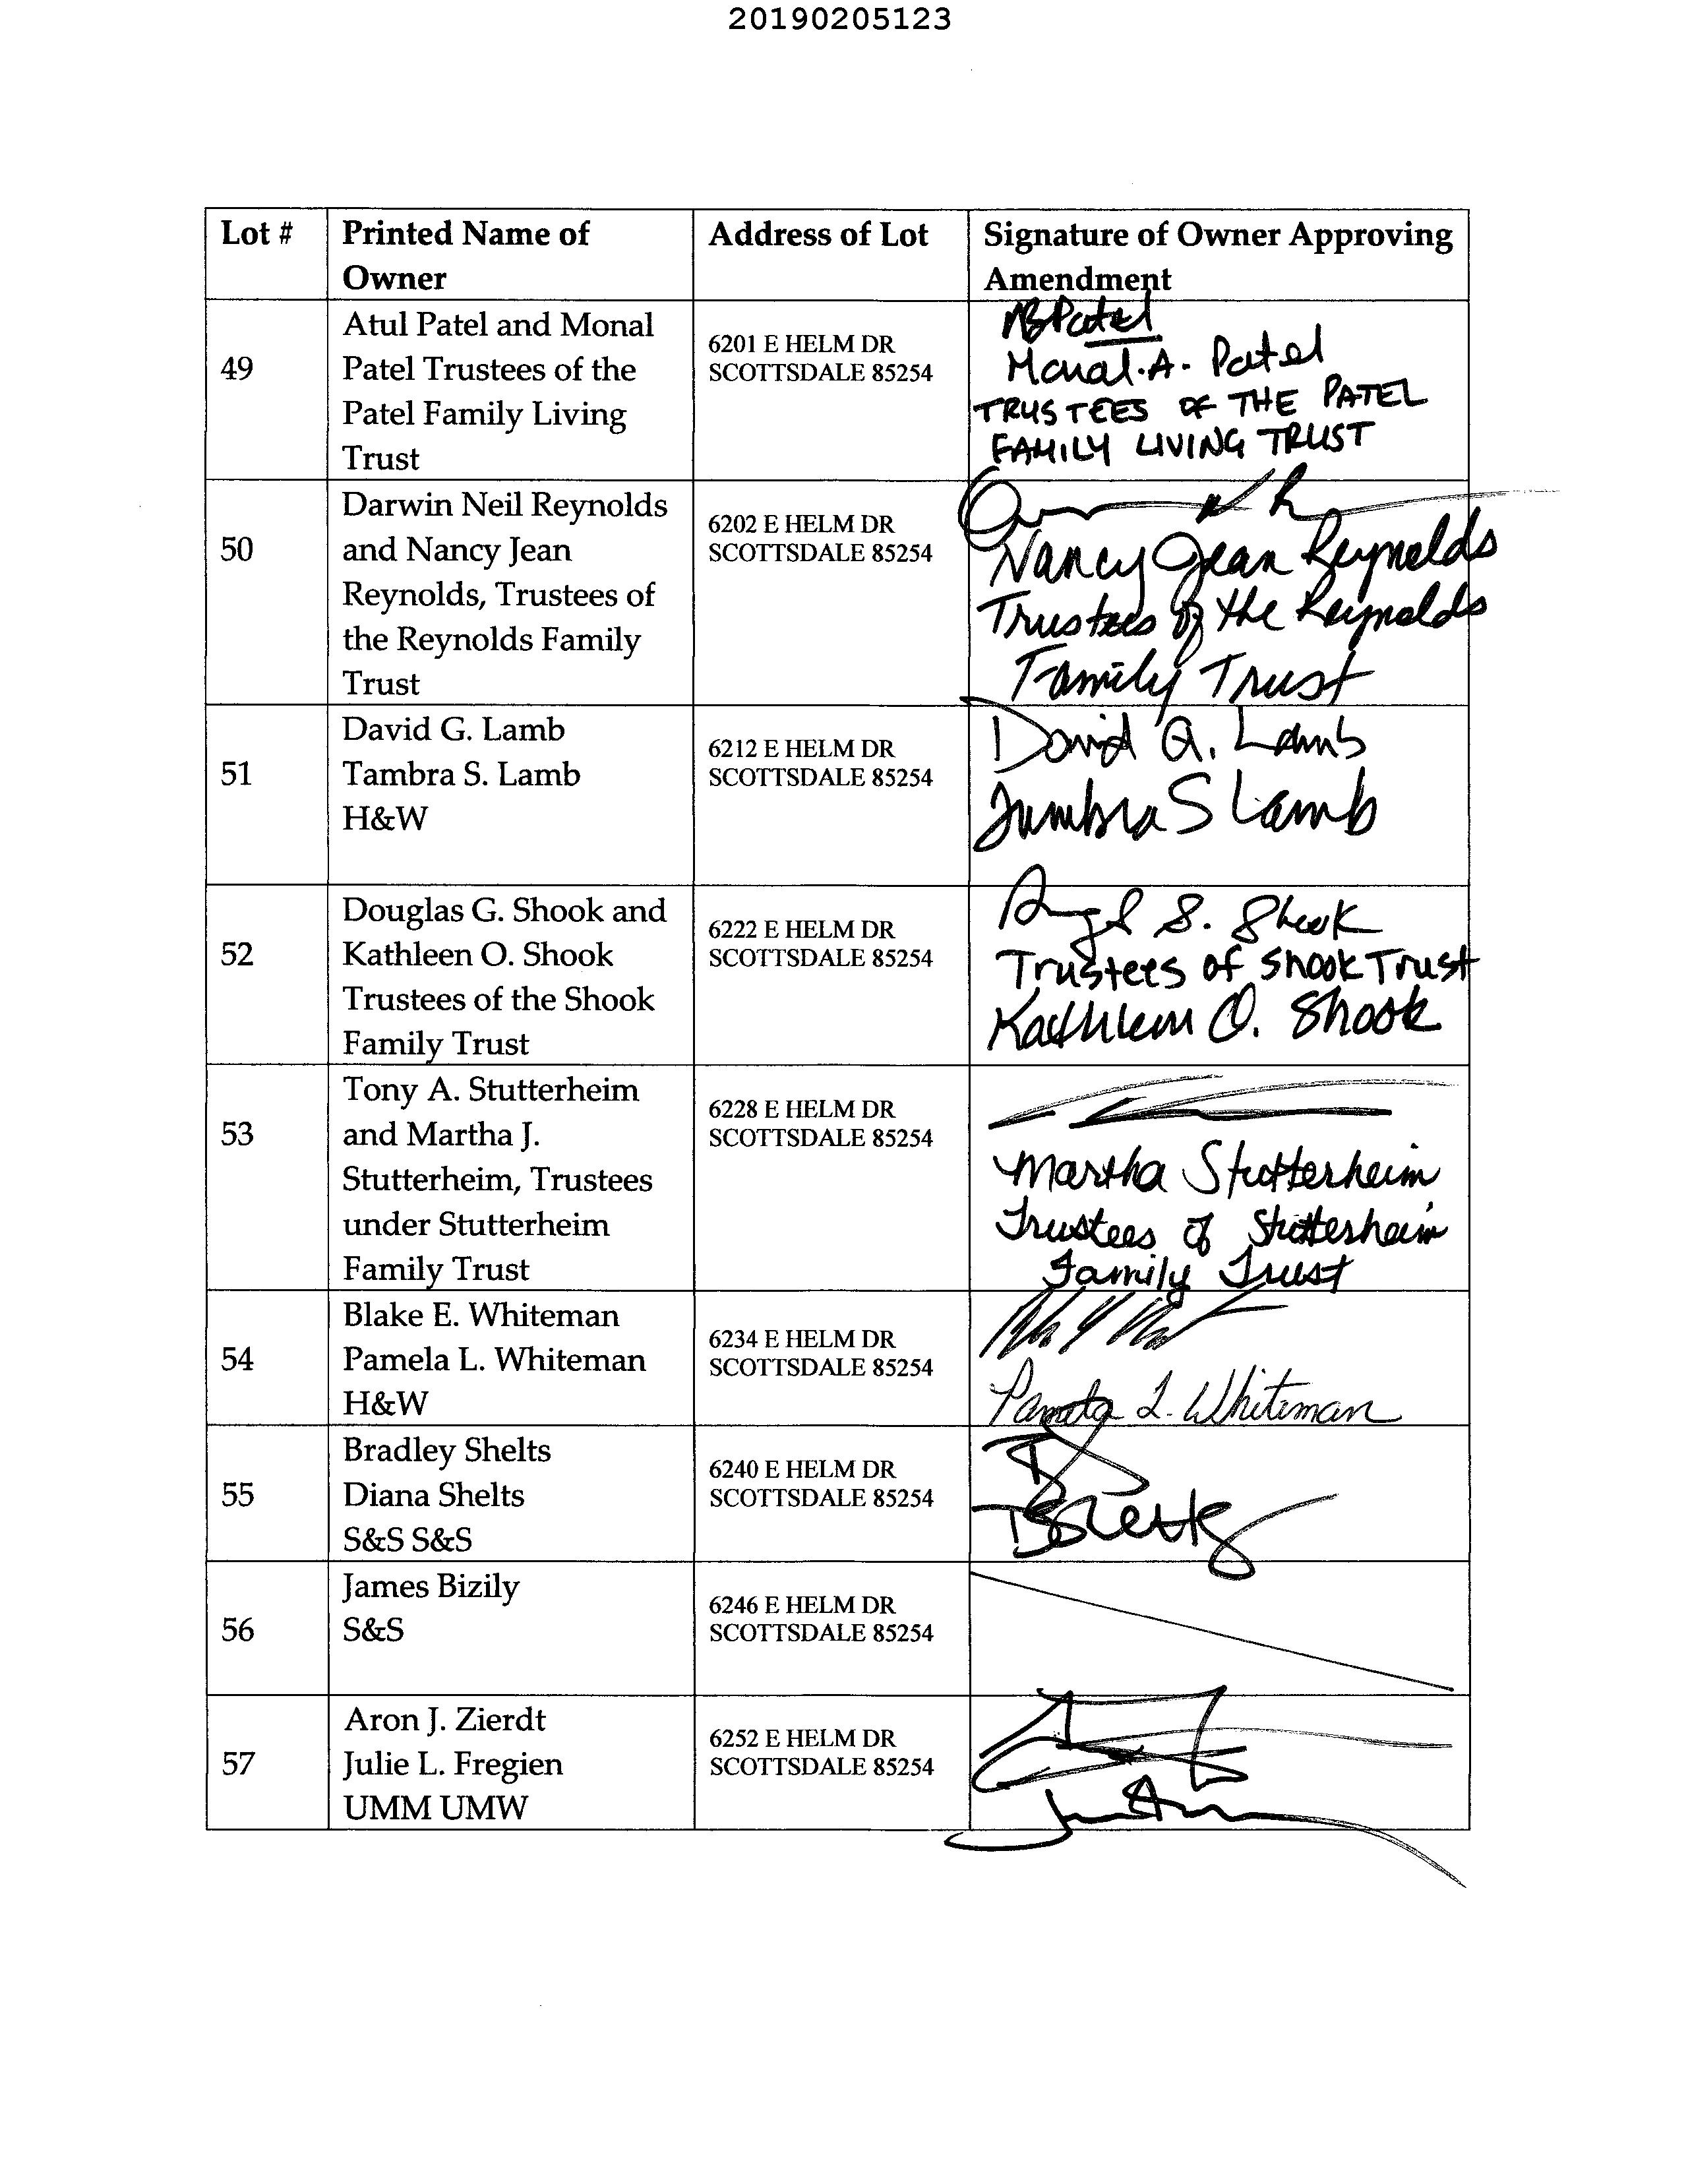 20190205123
Lot #
Printed Name of
Owner
Address of Lot
Signature of Owner Approving
Amendment
49
Atul Patel and Monal
Patel Trustees of the
Patel Family Living
Trust
6201 E HELM DR
SCOTTSDALE 85254
Patel
Monal. A. Patel
TRUSTEES OF THE PATEL
FAMILY LIVING TRUST
50
Darwin Neil Reynolds
and Nancy Jean
Reynolds, Trustees of
the Reynolds Family
Trust
6202 E HELM DR
SCOTTSDALE 85254
Nancy Jean Reynolds
Trustees of the Reynolds
Family Trust
51
David G. Lamb
Tambra S. Lamb
H&W
6212 E HELM DR
SCOTTSDALE 85254
David G. Lamb
Tambra S Lamb
52
Douglas G. Shook and
Kathleen O. Shook
Trustees of the Shook
Family Trust
6222 E HELM DR
SCOTTSDALE 85254
Shook
Trustees of Shook Trust
Kathleen O. Shook
53
Tony A. Stutterheim
and Martha J.
Stutterheim, Trustees
under Stutterheim
Family Trust
6228 E HELM DR
SCOTTSDALE 85254
Martha Stutterheim
Trustees of Stutterheim
Family Trust
54
Blake E. Whiteman
Pamela L. Whiteman
H&W
6234 E HELM DR
SCOTTSDALE 85254
Pamela L. Whiteman
55
Bradley Shelts
Diana Shelts
S&S S&S
6240 E HELM DR
SCOTTSDALE 85254
56
James Bizily
S&S
6246 E HELM DR
SCOTTSDALE 85254
57
Aron J. Zierdt
Julie L. Fregien
UMM UMW
6252 E HELM DR
SCOTTSDALE 85254